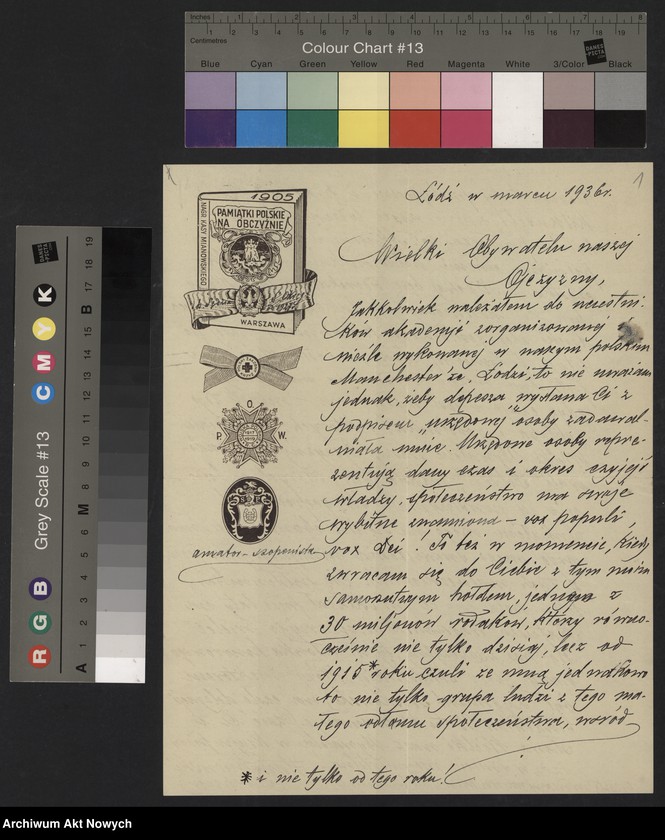 Inches 1 2 3 4 5 6 7 8
Centimetres 1 2 3 4 5 6 7 8 9 10 11 12 13 14 15 16 17 18 19
Colour Chart #13
DANES PICTA
Blue Cyan Green Yellow Red Magenta White 3/Color Black
Grey Scale #13
DANES PICTA
R G B C M Y K
A 1 2 3 4 5 6 M 7 8 9 10 11 12 13 14 15 B 16 17 18 19
1
Łódź w marcu 1936 r.
1905
PAMIĄTKI POLSKIE
NA OBCZYŹNIE
KASY MIANOWSKIEGO
WARSZAWA
P. O. W.
amator - szopenista
Wielki Obywatelu naszej
Ojczyzny,
Jakkolwiek należałem do uczestni-
ków akademji zorganizowanej i
nieźle wykonanej w naszym polskim
Manchester'ze, Łodzi, to nie uważam
jednak, żeby depesza wysłana Ci z
podpisem urzędowej osoby zadowal-
niała mnie. Urzędowe osoby repre-
zentują dany czas i okres czyjejś
władzy, społeczeństwo ma swoje
wybitne znamiona - vox populi
vox Dei! To też w momencie, kiedy
zwracam się do Ciebie z tym moim
samorzutnym hołdem, jednego z
30 miljonów rodaków, którzy równo-
cześnie nie tylko dzisiaj, lecz od
1915* roku czuli ze mną jednakowo
to nie tylko grupa ludzi z tego ma-
łego odłamu społeczeństwa, wśród
* i nie tylko od tego roku!
Archiwum Akt Nowych